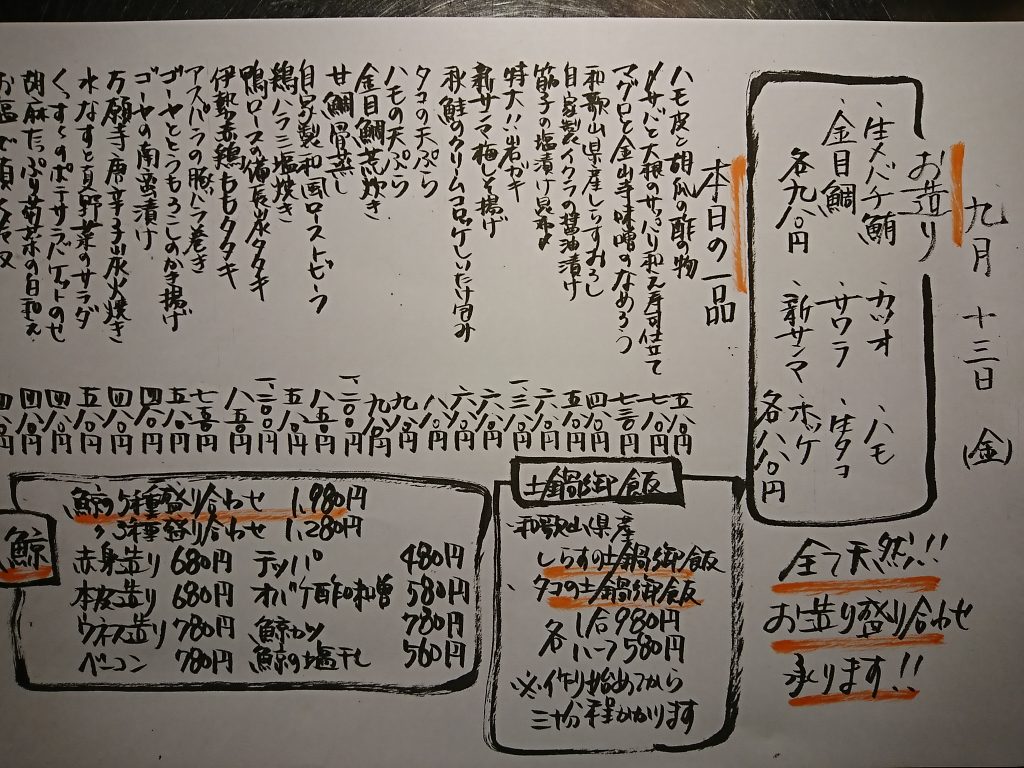 九月十三日(金)
お造り
・生メバチ鮪 カツオ ハモ
・金目鯛 サワラ 生タコ
各九八〇円 新サンマ ホッケ
各八八〇円
全て天然!!
お造り盛り合わせ
承ります!!
本日の一品
ハモ皮と胡瓜の酢の物 五八〇円
〆サバと大根のサッパリ和え寿司仕立て 七八〇円
マグロと金山寺味噌のなめろう 七三〇円
和歌山県産しらすおろし 四八〇円
自家製イクラの醤油漬け 五八〇円
筋子の塩漬け昆布〆 六八〇円
特大!!岩ガキ 一、三八〇円
新サンマ梅しそ揚げ 六八〇円
秋鮭のクリームコロッケしいたけ包み 六八〇円
タコの天ぷら 八八〇円
ハモの天ぷら 九八〇円
金目鯛荒炊き 九八〇円
甘鯛骨蒸し 一、二〇〇円
自家製和風ローストビーフ 八五〇円
鶏ハラミ塩焼き 五八〇円
鴨ロース備長炭タタキ 一、二〇〇円
伊勢赤鶏ももタタキ 八五〇円
アスパラの豚バラ巻き 七五〇円
ゴーヤととうもろこしのかき揚げ 五八〇円
ゴーヤの南蛮漬け 四八〇円
万願寺唐辛子炭火焼き 四八〇円
水なすと夏野菜のサラダ 五八〇円
ポテサラバケットのせ 四八〇円
胡麻たっぷり菊菜の白和え 四八〇円
土鍋御飯
・和歌山県産
しらすの土鍋御飯
・タコの土鍋御飯
各 1合980円
ハーフ580円
※作り始めてから
三十分程かかります
鯨
鯨の5種盛り合わせ 1,980円
〃3種盛り合わせ 1,280円
赤身造り 680円 テッパ 480円
本皮造り 680円 オバケ酢味噌 580円
ウネス造り 780円 鯨カツ 780円
ベーコン 780円 鯨の塩干し 560円